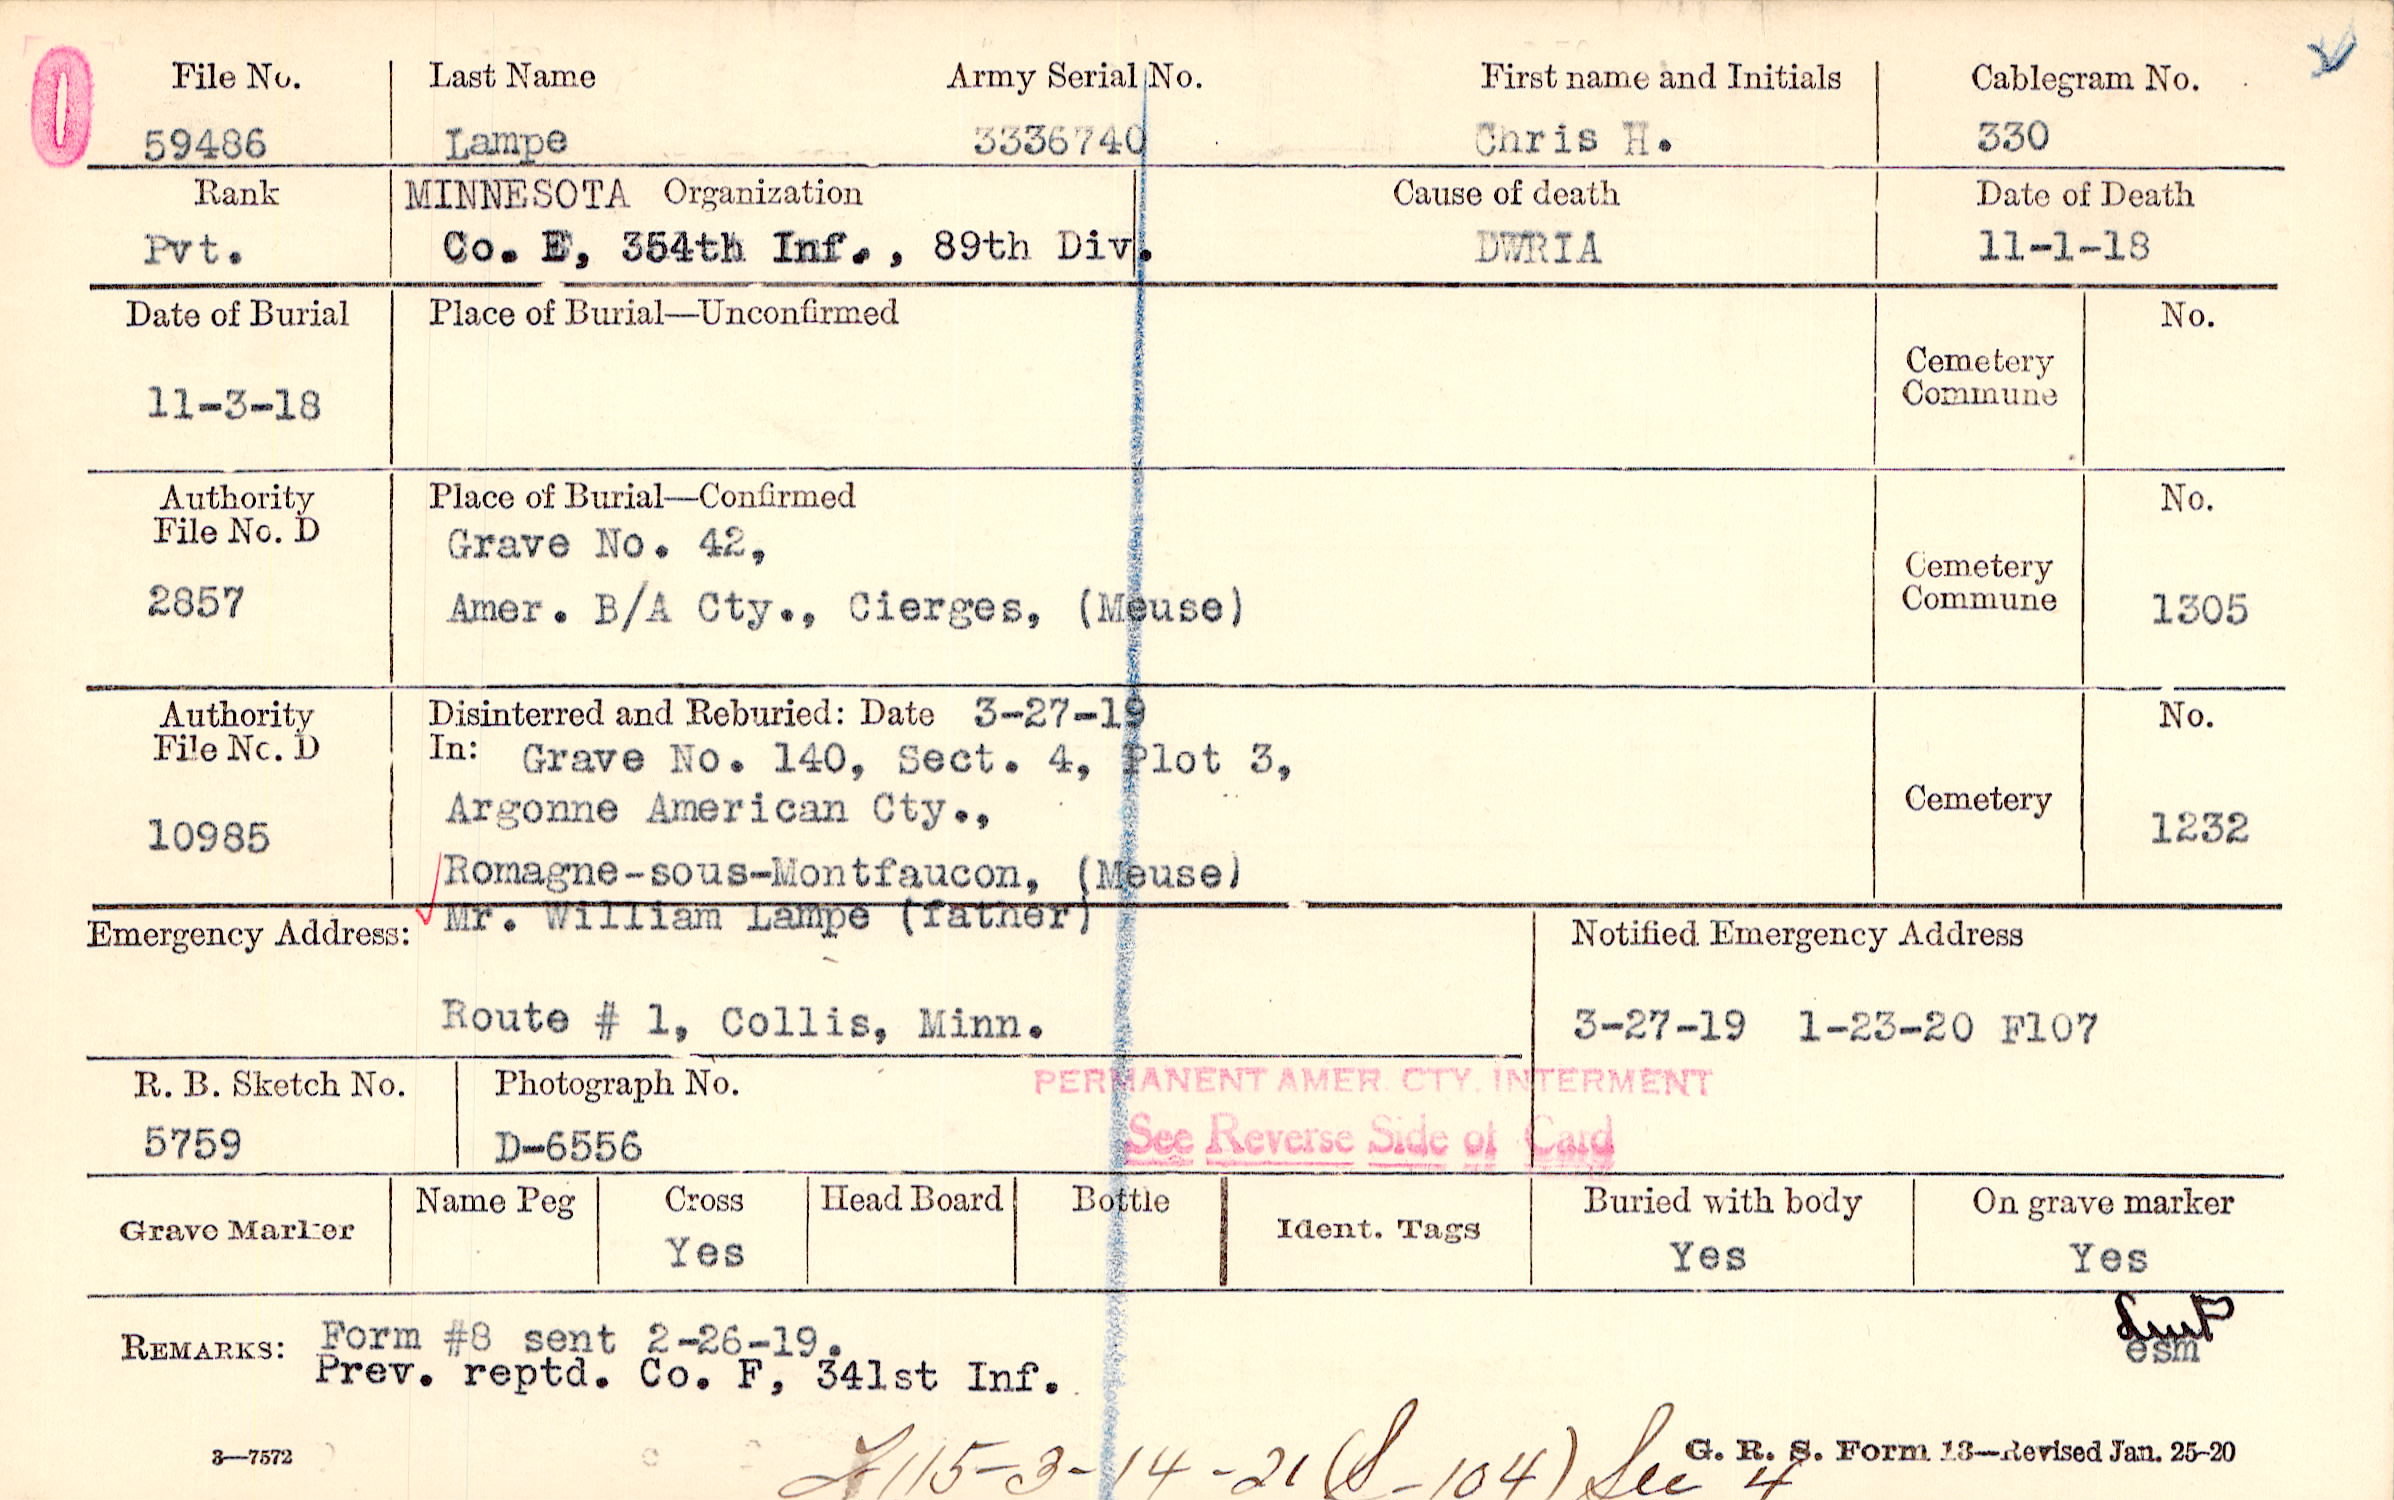 File No. Last Name Army Serial No. First name and Initials Cablegram No.
59486 Lampe 3336740 Chris H. 330
Rank MINNESOTA Organization Cause of death Date of Death
Pvt. Co. E, 354th Inf., 89th Div. DWRIA 11-1-18
Date of Burial Place of Burial—Unconfirmed No.
Cemetery
Commune
11-3-18
Authority Place of Burial—Confirmed No.
File No. D
Grave No. 42,
Cemetery
Commune
2857 Amer. B/A Cty., Cierges, (Meuse) 1305
Authority Disinterred and Reburied: Date 3-27-19 No.
File No. D In: Grave No. 140, Sect. 4, Plot 3,
Argonne American Cty., Cemetery
10985 1232
Romagne-sous-Montfaucon, (Meuse)
Emergency Address: Mr. William Lampe (father) Notified Emergency Address
Route # 1, Collis, Minn. 3-27-19 1-23-20 F107
R. B. Sketch No. Photograph No. PERMANENT AMER. CTY. INTERMENT
5759 D-6556 See Reverse Side of Card
Grave Marker Name Peg Cross Head Board Bottle Ident. Tags Buried with body On grave marker
Yes Yes Yes
REMARKS: Form #8 sent 2-26-19.
esm
Prev. reptd. Co. F, 341st Inf.
3—7572 G. R. S. Form 13—Revised Jan. 25-20
115-3-14-21 (S-104) Sec 4